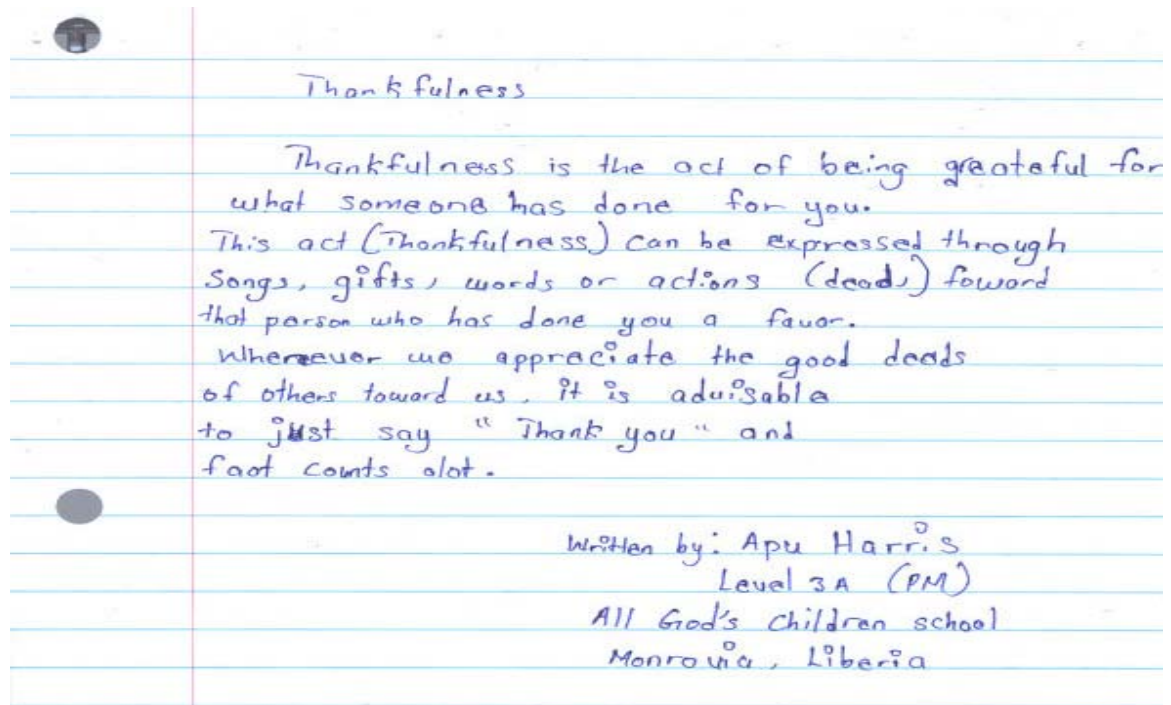 Thankfulness
Thankfulness is the act of being greateful for
what someone has done for you.
This act (Thankfulness) can be expressed through
Songs, gifts, words or actions (deads) foward
that person who has done you a favor.
Whenever we appreciate the good deeds
of others toward us, it is advisable
to just say "Thank you" and
faat counts alot.
Written by: Apu Harris
Level 3A (PM)
All God's children school
Monrovia, Liberia